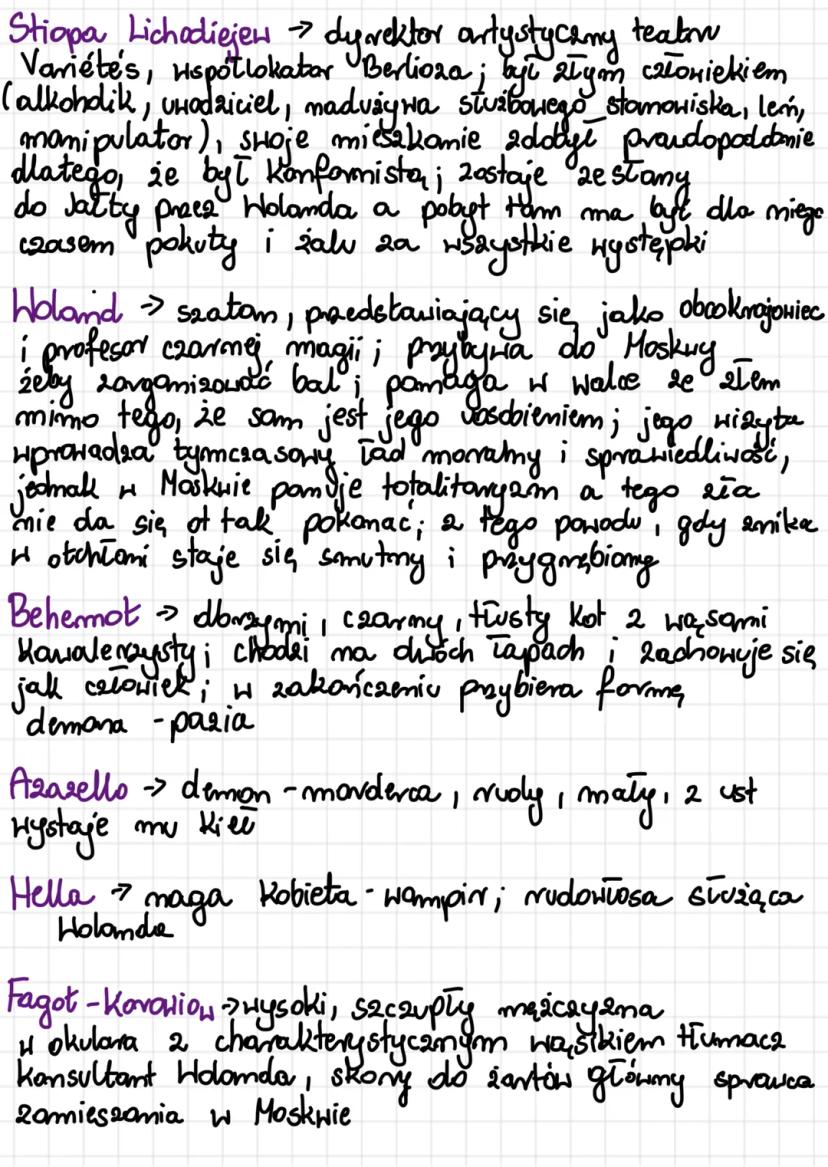 Stiopa Lichodiejew → dyrektor artystyczny teatru
Variétés, współlokator Berlioza; był złym człowiekiem
(alkoholik, uwodziciel, nadużywa służbowego stanowiska, leń,
manipulator), swoje mieszkanie zdobył prawdopodobnie
dlatego, że był konformistą; zostaje zesłany
do Jałty przez Wolanda a pobyt tam ma być dla niego
czasem pokuty i żalu za wszystkie występki
Woland → szatan, przedstawiający się jako obcokrajowiec
i profesor czarnej magii; przybywa do Moskwy
żeby zorganizować bal; pomaga w walce ze złem
mimo tego, że sam jest jego uosobieniem; jego wizyta
wprowadza tymczasowy ład moralny i sprawiedliwość,
jednak w Moskwie panuje totalitaryzm a tego zła
nie da się ot tak pokonać; z tego powodu, gdy znika
w otchłani staje się smutny i przygnębiony
Behemot → olbrzymi, czarny, tłusty kot z wąsami
kawalerzysty; chodzi na dwóch łapach i zachowuje się
jak człowiek; w zakończeniu przybiera formę
demona - pazia
Azazello → demon - morderca, rudy, mały, z ust
wystaje mu kieł
Hella → naga kobieta - wampir; rudowłosa służąca
Wolanda
Fagot - Korowiow → wysoki, szczupły mężczyzna
w okulara z charakterystycznym wąsikiem tłumacz
konsultant Wolanda, skory do żartów główny sprawca
zamieszania w Moskwie